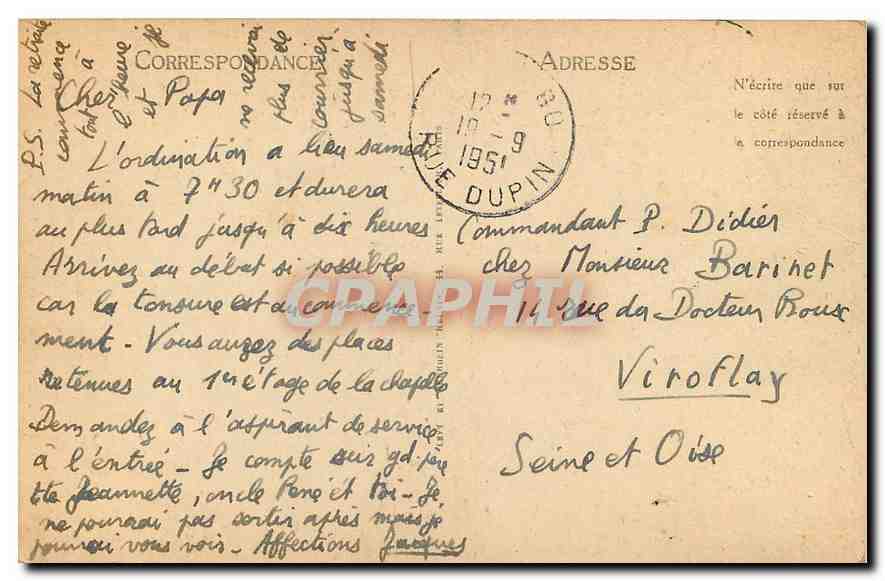 CORRESPONDANCE
ADRESSE
N'écrire que sur
le côté réservé à
la correspondance
P.S. La retraite
commence
tout à
l'heure je
ne recevrai
plus de
courrier
jusqu'à
samedi
Cher Papa
L'ordination a lieu samedi
matin à 7H30 et durera
au plus tard jusqu'à dix heures
Arrivez au début si possible
car la tonsure est au commence-
ment - Vous aurez des places
retenues au 1er étage de la chapelle
Demandez à l'aspirant de service
à l'entrée - Je compte sur gd-père
tte Jeannette, oncle René et toi - Je
ne pourrai pas sortir après mais je
pourrai vous voir - Affections Jacques
1951
RUE DUPIN
Commandant P. Didier
chez Monsieur Barinet
14 rue du Docteur Roux
Viroflay
Seine et Oise
CRAPHIL